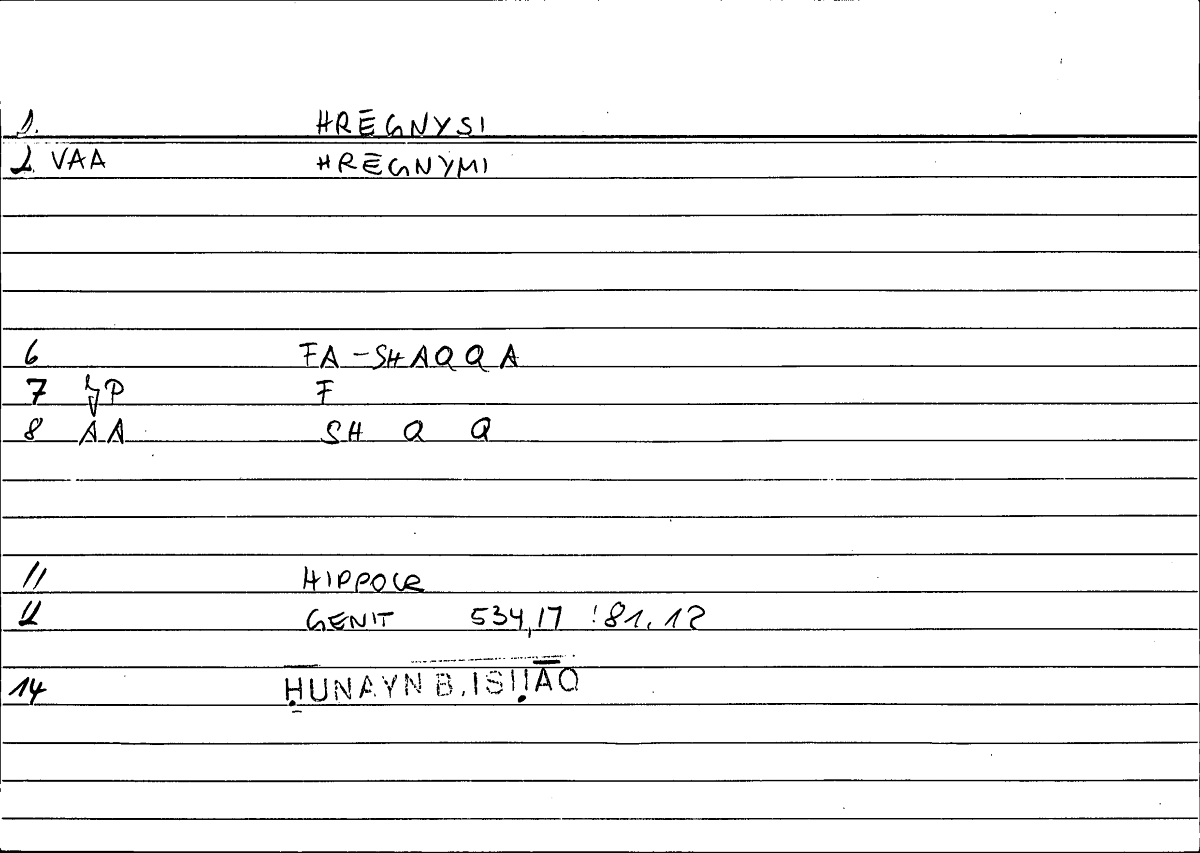 1. HRĒGNYSI
2. VAA HRĒGNYMI
6 FA-SHAQQA
7 P F
8 AA SH Q Q
11 HIPPOCR
12 GENIT 534,17 : 81.12
14 ḤUNAYN B. ISḤĀQ